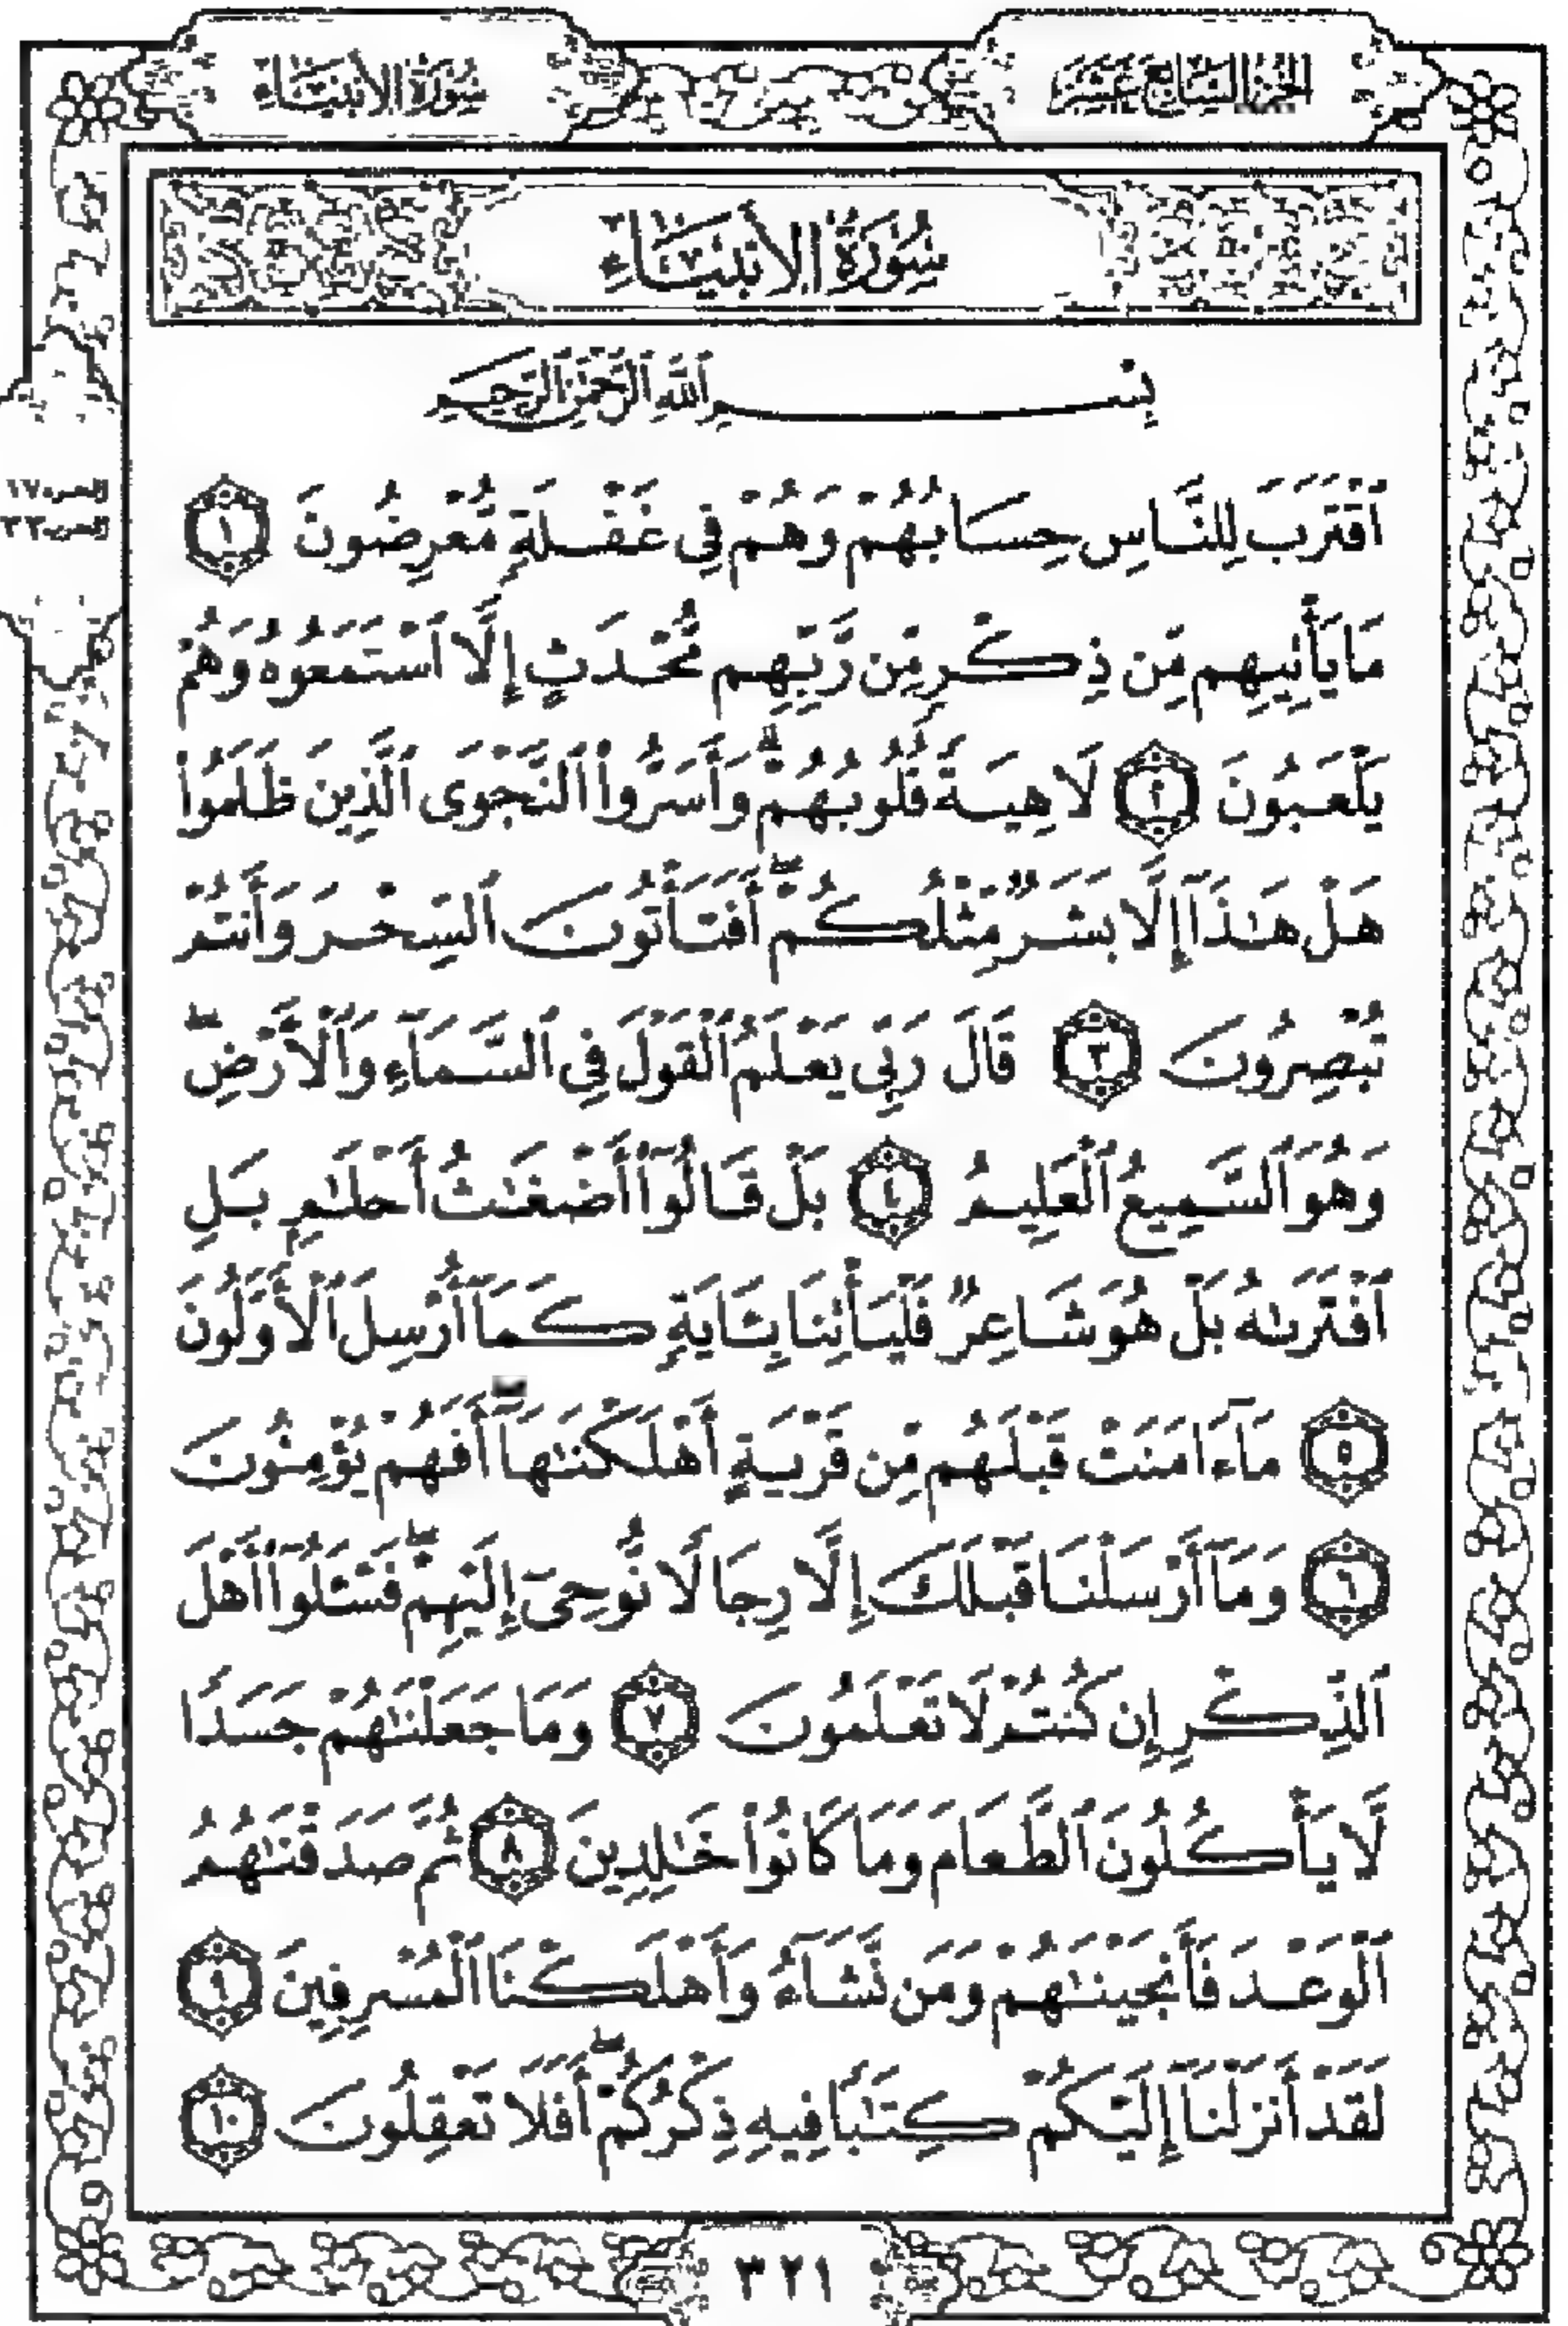 الجزء السابع عشر
سورة الأنبياء
سُورَةُ الأَنْبِيَاءِ
بِسْمِ ٱللَّهِ ٱلرَّحْمَٰنِ ٱلرَّحِيمِ
ٱقْتَرَبَ لِلنَّاسِ حِسَابُهُمْ وَهُمْ فِى غَفْلَةٍ مُّعْرِضُونَ ١
مَا يَأْتِيهِم مِّن ذِكْرٍ مِّن رَّبِّهِم مُّحْدَثٍ إِلَّا ٱسْتَمَعُوهُ وَهُمْ
يَلْعَبُونَ ٢ لَاهِيَةً قُلُوبُهُمْ ۗ وَأَسَرُّوا۟ ٱلنَّجْوَى ٱلَّذِينَ ظَلَمُوا۟
هَلْ هَـٰذَآ إِلَّا بَشَرٌ مِّثْلُكُمْ ۖ أَفَتَأْتُونَ ٱلسِّحْرَ وَأَنتُمْ
تُبْصِرُونَ ٣ قَالَ رَبِّى يَعْلَمُ ٱلْقَوْلَ فِى ٱلسَّمَآءِ وَٱلْأَرْضِ ۖ
وَهُوَ ٱلسَّمِيعُ ٱلْعَلِيمُ ٤ بَلْ قَالُوٓا۟ أَضْغَـٰثُ أَحْلَـٰمٍ بَلِ
ٱفْتَرَىٰهُ بَلْ هُوَ شَاعِرٌ فَلْيَأْتِنَا بِـَٔايَةٍ كَمَآ أُرْسِلَ ٱلْأَوَّلُونَ
٥ مَآ ءَامَنَتْ قَبْلَهُم مِّن قَرْيَةٍ أَهْلَكْنَـٰهَآ ۖ أَفَهُمْ يُؤْمِنُونَ
٦ وَمَآ أَرْسَلْنَا قَبْلَكَ إِلَّا رِجَالًا نُّوحِىٓ إِلَيْهِمْ ۖ فَسْـَٔلُوٓا۟ أَهْلَ
ٱلذِّكْرِ إِن كُنتُمْ لَا تَعْلَمُونَ ٧ وَمَا جَعَلْنَـٰهُمْ جَسَدًا
لَّا يَأْكُلُونَ ٱلطَّعَامَ وَمَا كَانُوا۟ خَـٰلِدِينَ ٨ ثُمَّ صَدَقْنَـٰهُمُ
ٱلْوَعْدَ فَأَنجَيْنَـٰهُمْ وَمَن نَّشَآءُ وَأَهْلَكْنَا ٱلْمُسْرِفِينَ ٩
لَقَدْ أَنزَلْنَآ إِلَيْكُمْ كِتَـٰبًا فِيهِ ذِكْرُكُمْ ۖ أَفَلَا تَعْقِلُونَ ١٠
٣٢١